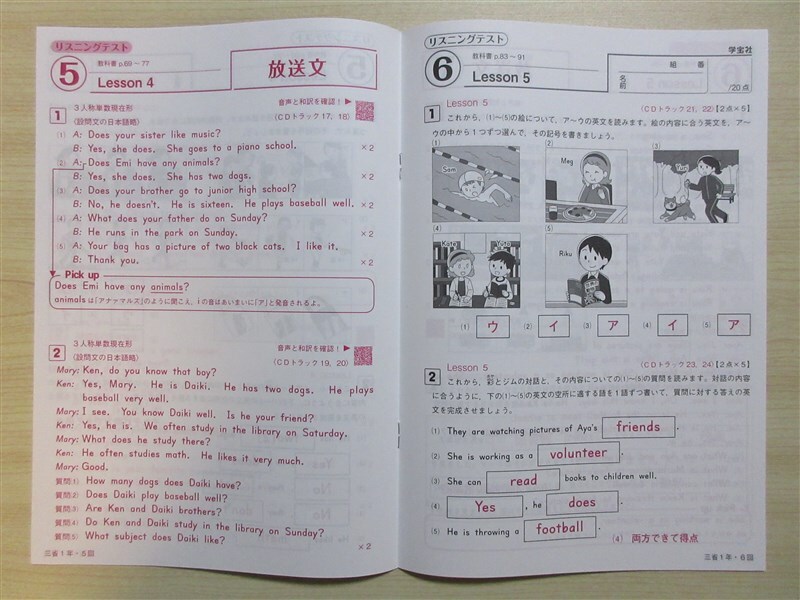 リスニングテスト
5
教科書 p.69～77
Lesson 4
放送文
1
3人称単数現在形
〈設問文の日本語略〉
音声と和訳を確認！▶
(CDトラック 17, 18)
(1) A: Does your sister like music?
B: Yes, she does. She goes to a piano school. ×2
(2) A: Does Emi have any animals?
B: Yes, she does. She has two dogs. ×2
(3) A: Does your brother go to junior high school?
B: No, he doesn't. He is sixteen. He plays baseball well. ×2
(4) A: What does your father do on Sunday?
B: He runs in the park on Sunday. ×2
(5) A: Your bag has a picture of two black cats. I like it.
B: Thank you. ×2
Pick up
Does Emi have any animals?
animals は「アナァマルズ」のように聞こえ、i の音はあいまいに「ア」と発音されるよ。
2
3人称単数現在形
〈設問文の日本語略〉
音声と和訳を確認！▶
(CDトラック 19, 20)
Mary: Ken, do you know that boy?
Ken: Yes, Mary. He is Daiki. He has two dogs. He plays
baseball very well.
Mary: I see. You know Daiki well. Is he your friend?
Ken: Yes, he is. We often study in the library on Saturday.
Mary: What does he study there?
Ken: He often studies math. He likes it very much.
Mary: Good.
質問(1) How many dogs does Daiki have?
質問(2) Does Daiki play baseball well?
質問(3) Are Ken and Daiki brothers?
質問(4) Do Ken and Daiki study in the library on Sunday?
質問(5) What subject does Daiki like?
×2
三省1年・5回
リスニングテスト
6
教科書 p.83～91
Lesson 5
学宝社
組 番
名前
/20点
1
Lesson 5
(CDトラック 21, 22)【2点×5】
これから、(1)～(5)の絵について、ア～ウの英文を読みます。絵の内容に合う英文を、ア～
ウの中から1つずつ選んで、その記号を書きましょう。
(1)
Sam
(2)
Meg
(3)
Yuri
(4)
Kato
Yota
(5)
Riku
(1) ウ (2) イ (3) ア (4) イ (5) ア
2
Lesson 5
(CDトラック 23, 24)【2点×5】
これから、彩とジムの対話と、その内容についての(1)～(5)の質問を読みます。対話の内容
に合うように、下の(1)～(5)の英文の空所に適する語を1語ずつ書いて、質問に対する答えの英
文を完成させましょう。
(1) They are watching pictures of Aya's friends .
(2) She is working as a volunteer .
(3) She can read books to children well.
(4) Yes , he does .
(5) He is throwing a football .
(4) 両方できて得点
三省1年・6回